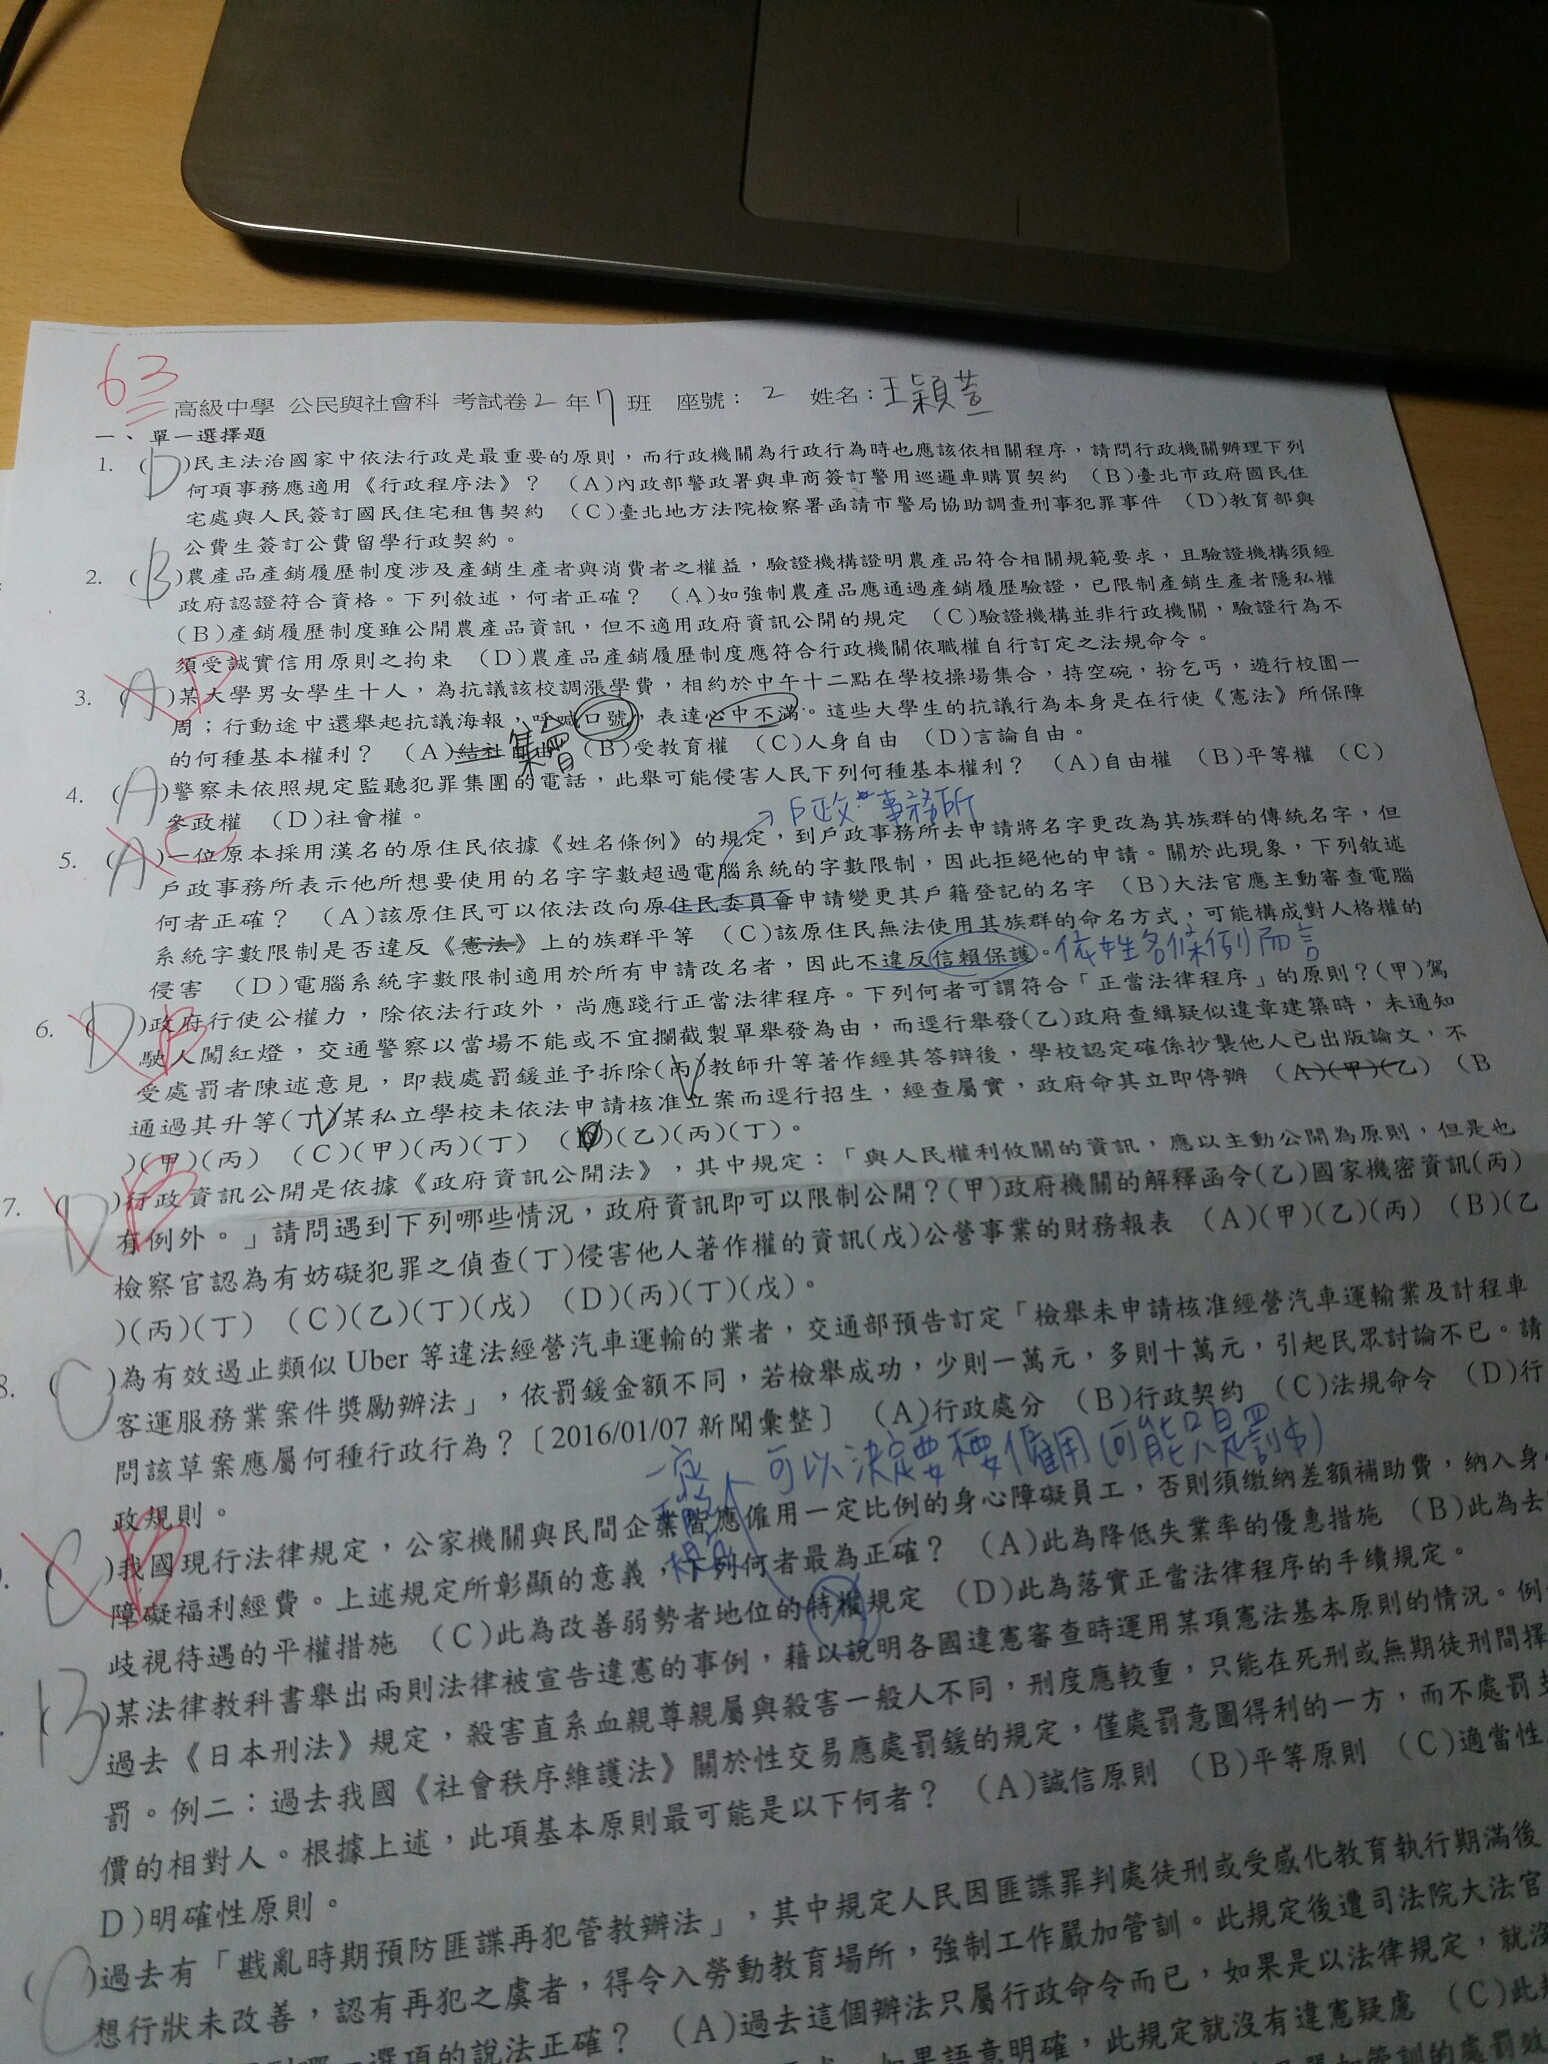 63
高級中學 公民與社會科 考試卷 2 年 7 班 座號： 2 姓名：王穎萱
一、單一選擇題
1. (D)民主法治國家中依法行政是最重要的原則，而行政機關為行政行為時也應該依相關程序，請問行政機關辦理下列
何項事務應適用《行政程序法》？ (A)內政部警政署與車商簽訂警用巡邏車購買契約 (B)臺北市政府國民住
宅處與人民簽訂國民住宅租售契約 (C)臺北地方法院檢察署函請市警局協助調查刑事犯罪事件 (D)教育部與
公費生簽訂公費留學行政契約。
2. (B)農產品產銷履歷制度涉及產銷生產者與消費者之權益，驗證機構證明農產品符合相關規範要求，且驗證機構須經
政府認證符合資格。下列敘述，何者正確？ (A)如強制農產品應通過產銷履歷驗證，已限制產銷生產者隱私權
(B)產銷履歷制度雖公開農產品資訊，但不適用政府資訊公開的規定 (C)驗證機構並非行政機關，驗證行為不
須受誠實信用原則之拘束 (D)農產品產銷履歷制度應符合行政機關依職權自行訂定之法規命令。
3. (A) D 某大學男女學生十人，為抗議該校調漲學費，相約於中午十二點在學校操場集合，持空碗，扮乞丐，遊行校園一
周；行動途中還舉起抗議海報，呼喊口號，表達心中不滿。這些大學生的抗議行為本身是在行使《憲法》所保障
的何種基本權利？ (A)結社自由 (B)受教育權 (C)人身自由 (D)言論自由。
集會
4. (A)警察未依照規定監聽犯罪集團的電話，此舉可能侵害人民下列何種基本權利？ (A)自由權 (B)平等權 (C)
參政權 (D)社會權。
戶政事務所
5. (A) C 一位原本採用漢名的原住民依據《姓名條例》的規定，到戶政事務所去申請將名字更改為其族群的傳統名字，但
戶政事務所表示他所想要使用的名字字數超過電腦系統的字數限制，因此拒絕他的申請。關於此現象，下列敘述
何者正確？ (A)該原住民可以依法改向原住民委員會申請變更其戶籍登記的名字 (B)大法官應主動審查電腦
系統字數限制是否違反《憲法》上的族群平等 (C)該原住民無法使用其族群的命名方式，可能構成對人格權的
侵害 (D)電腦系統字數限制適用於所有申請改名者，因此不違反信賴保護。依姓名條例而言
6. (D) B 政府行使公權力，除依法行政外，尚應踐行正當法律程序。下列何者可謂符合「正當法律程序」的原則？(甲)駕
駛人闖紅燈，交通警察以當場不能或不宜攔截製單舉發為由，而逕行舉發(乙)政府查緝疑似違章建築時，未通知
受處罰者陳述意見，即裁處罰鍰並予拆除(丙)教師升等著作經其答辯後，學校認定確係抄襲他人已出版論文，不
通過其升等(丁)某私立學校未依法申請核准立案而逕行招生，經查屬實，政府命其立即停辦 (A)(甲)(乙) (B
)(甲)(丙) (C)(甲)(丙)(丁) (D)(乙)(丙)(丁)。
7. (D) B 行政資訊公開是依據《政府資訊公開法》，其中規定：「與人民權利攸關的資訊，應以主動公開為原則，但是也
有例外。」請問遇到下列哪些情況，政府資訊即可以限制公開？(甲)政府機關的解釋函令(乙)國家機密資訊(丙)
檢察官認為有妨礙犯罪之偵查(丁)侵害他人著作權的資訊(戊)公營事業的財務報表 (A)(甲)(乙)(丙) (B)(乙
)(丙)(丁) (C)(乙)(丁)(戊) (D)(丙)(丁)(戊)。
8. (C)為有效遏止類似 Uber 等違法經營汽車運輸的業者，交通部預告訂定「檢舉未申請核准經營汽車運輸業及計程車
客運服務業案件獎勵辦法」，依罰鍰金額不同，若檢舉成功，少則一萬元，多則十萬元，引起民眾討論不已。請
問該草案應屬何種行政行為？〔2016/01/07 新聞彙整〕 (A)行政處分 (B)行政契約 (C)法規命令 (D)行
政規則。
一定 人 可以決定要不要僱用(可能只是罰$)
(C) B 我國現行法律規定，公家機關與民間企業皆應僱用一定比例的身心障礙員工，否則須繳納差額補助費，納入身
障礙福利經費。上述規定所彰顯的意義，下列何者最為正確？ (A)此為降低失業率的優惠措施 (B)此為去
歧視待遇的平權措施 (C)此為改善弱勢者地位的特權規定 (D)此為落實正當法律程序的手續規定。
(B)某法律教科書舉出兩則法律被宣告違憲的事例，藉以說明各國違憲審查時運用某項憲法基本原則的情況。例
過去《日本刑法》規定，殺害直系血親尊親屬與殺害一般人不同，刑度應較重，只能在死刑或無期徒刑間擇
罰。例二：過去我國《社會秩序維護法》關於性交易應處罰鍰的規定，僅處罰意圖得利的一方，而不處罰
價的相對人。根據上述，此項基本原則最可能是以下何者？ (A)誠信原則 (B)平等原則 (C)適當性
D)明確性原則。
(C)過去有「戡亂時期預防匪諜再犯管教辦法」，其中規定人民因匪諜罪判處徒刑或受感化教育執行期滿後
想行狀未改善，認有再犯之虞者，得令入勞動教育場所，強制工作嚴加管訓。此規定後遭司法院大法官
選項的說法正確？ (A)過去這個辦法只屬行政命令而已，如果是以法律規定，就沒
如果語意明確，此規定就沒有違憲疑慮 (C)此
管訓的處罰效